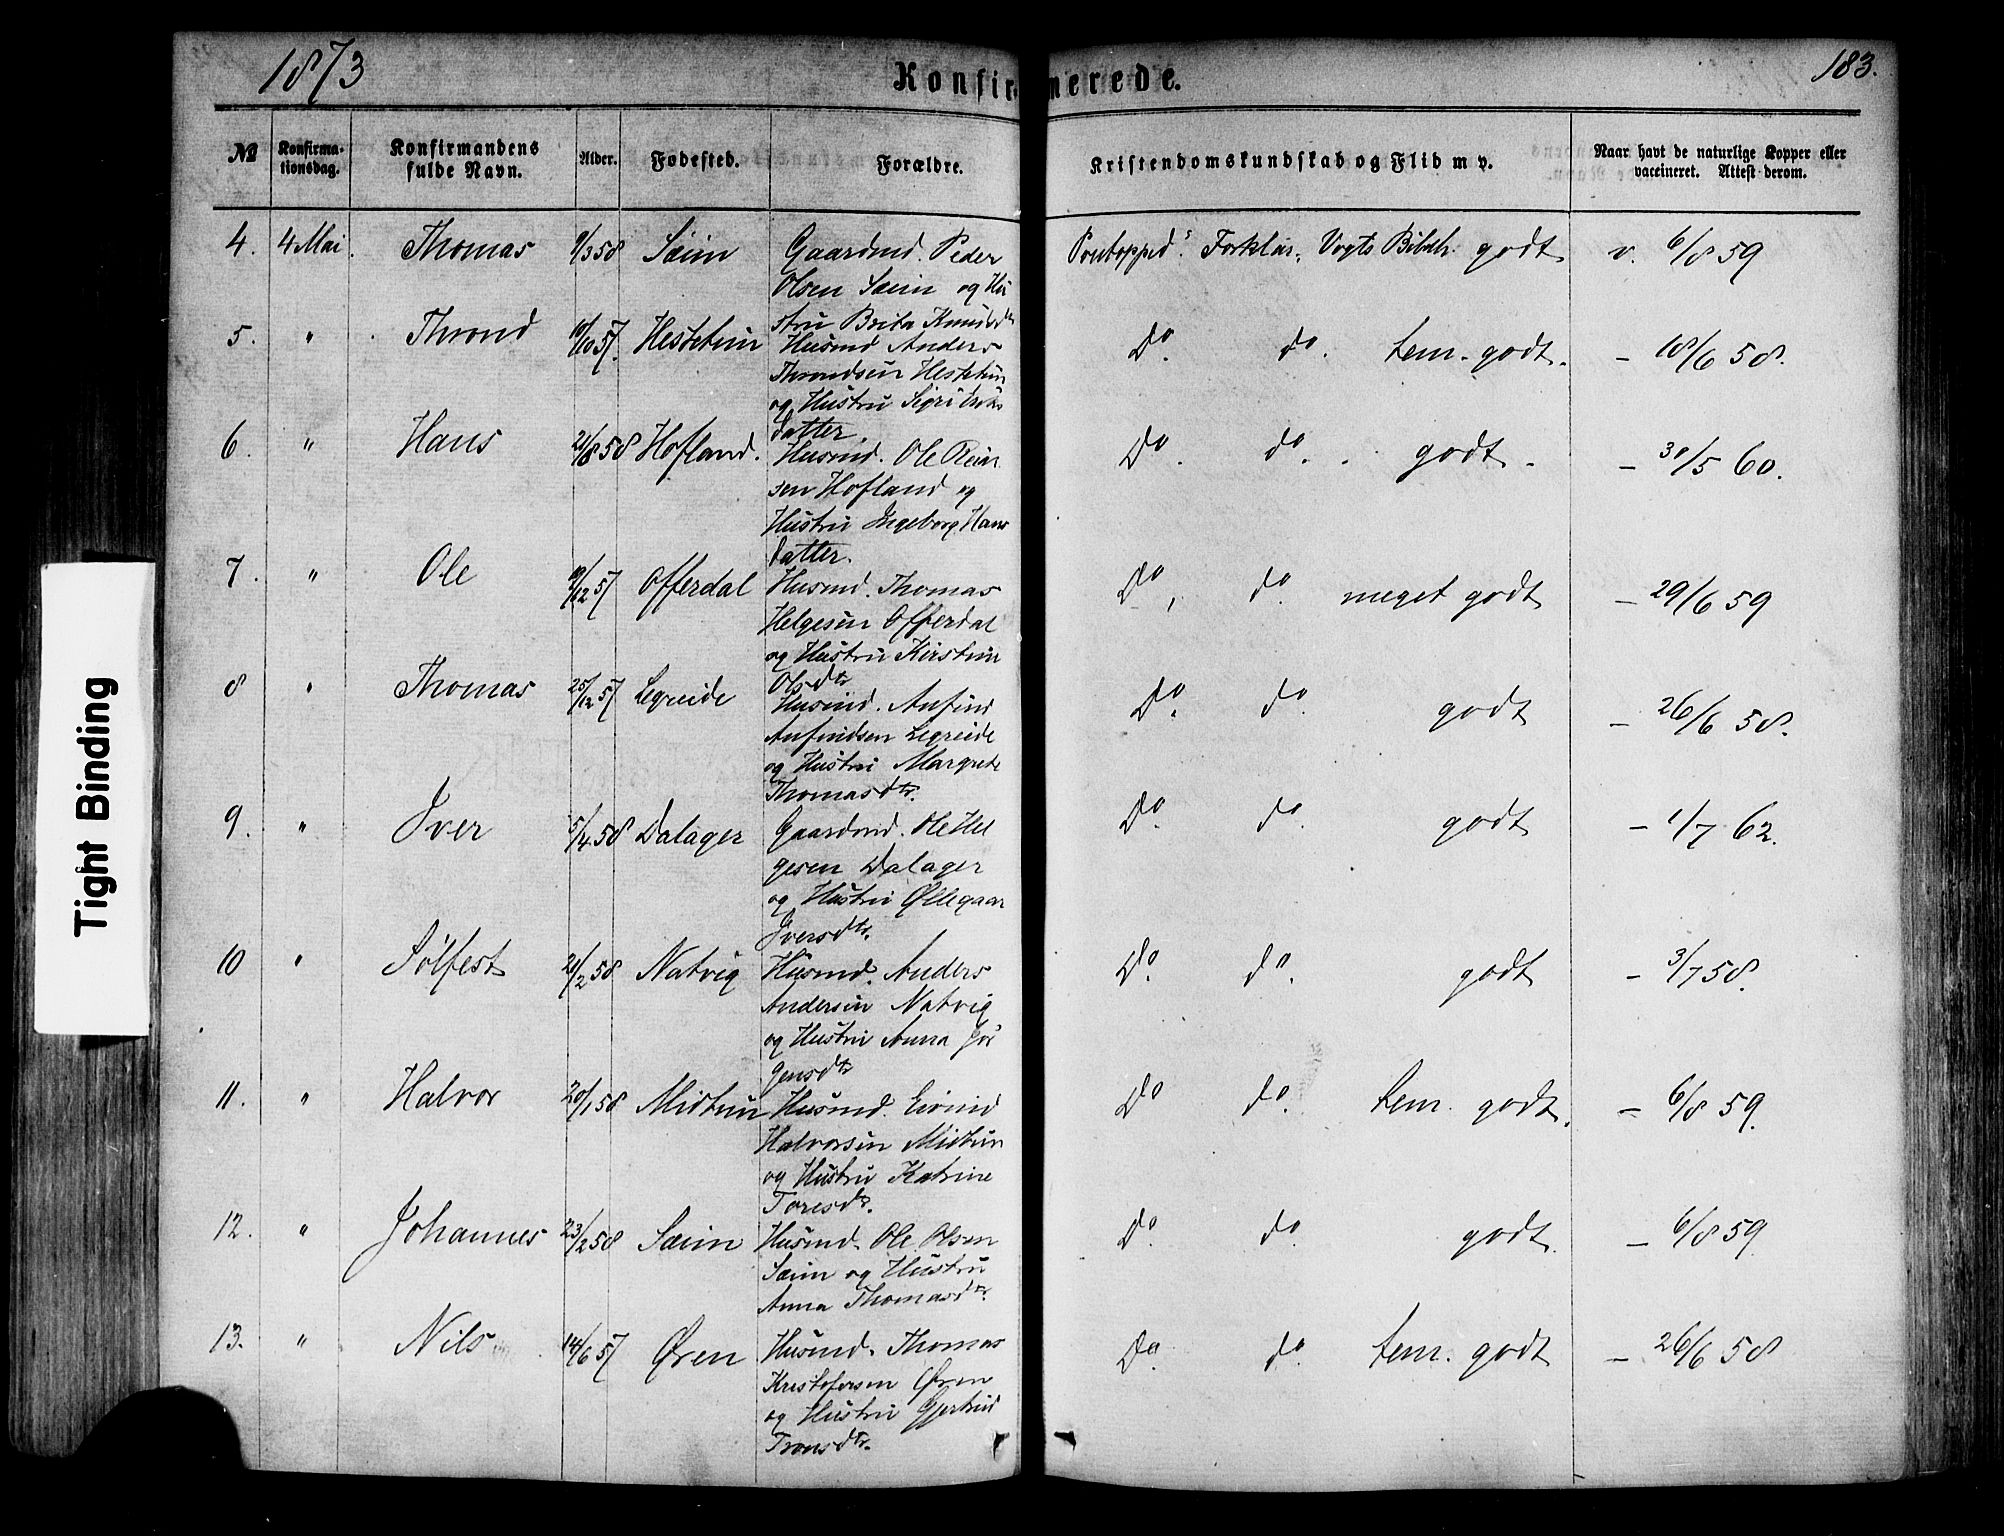 1873
Konfirmerede.
183.
№
Konfirma-
tionsdag.
Konfirmandens
fulde Navn.
Alder.
Fødested.
Forældre.
Kristendomskundskab og Flid m v.
Naar havt de naturlige Kopper eller
vaccineret. Attest derom.
4. 4 Mai. Thomas 9/3 58 Sæim Gaardmd. Peder Pontopped.s Forklar. Vogts Bibelh. godt v. 6/8 59
Olsen Sæim og Hu
stru Brita Knutsdtr
5. " Thrond 10/10 57. Hestetun Husmd Anders Do. do. tem. godt. - 18/6 58.
Throndsen Hestetun
og Hustru Sigri
datter.
6. " Hans 21/8 58 Hofland. Husmd. Ole Rein Do. do. godt. - 30/5 60.
sen Hofland og
Hustru Ingeborg Hans
datter.
7. " Ole 19/12 57 Offerdal Husmd. Thomas Do, do. meget godt - 29/6 59
Helgesen Offerdal
og Hustru Kirstine
Olsdtr
8 " Thomas 25/12 57 Legreide Husmd. Anfind Do. do. godt - 26/6 58.
Anfindsen Legreide
og Hustru Margrete
Thomasdtr.
9. " Iver 5/4 58 Dalager Gaardmd. Ole Hel Do. do. godt - 1/7 62.
gesen Dalager
og Hustru Øllegaar
Iversdtr.
10 " Sølfest 21/2 58 Natvig Husmd. Anders Do. do. godt - 3/7 58.
Andersen Natvig
og Hustru Anna Jør
gensdtr
11. " Halvor 20/1 58 Midtun Husmd. Eivind Do do. tem. godt. - 6/8 59.
Halvorsen Midtun
og Hustru Katrine
Toresdtr.
12. " Johannes 23/2 58 Sæim Husmd. Ole Olsen Do. do. godt. - 6/8 59.
Sæim og Hustru
Anna Thomasdtr.
13. " Nils 14/6 57 Øren Husmd. Thomas Do. do. tem. godt - 26/6 58
Kristofersen Øren
og Hustru Gjertrud
Tronsdtr.
Tight Binding